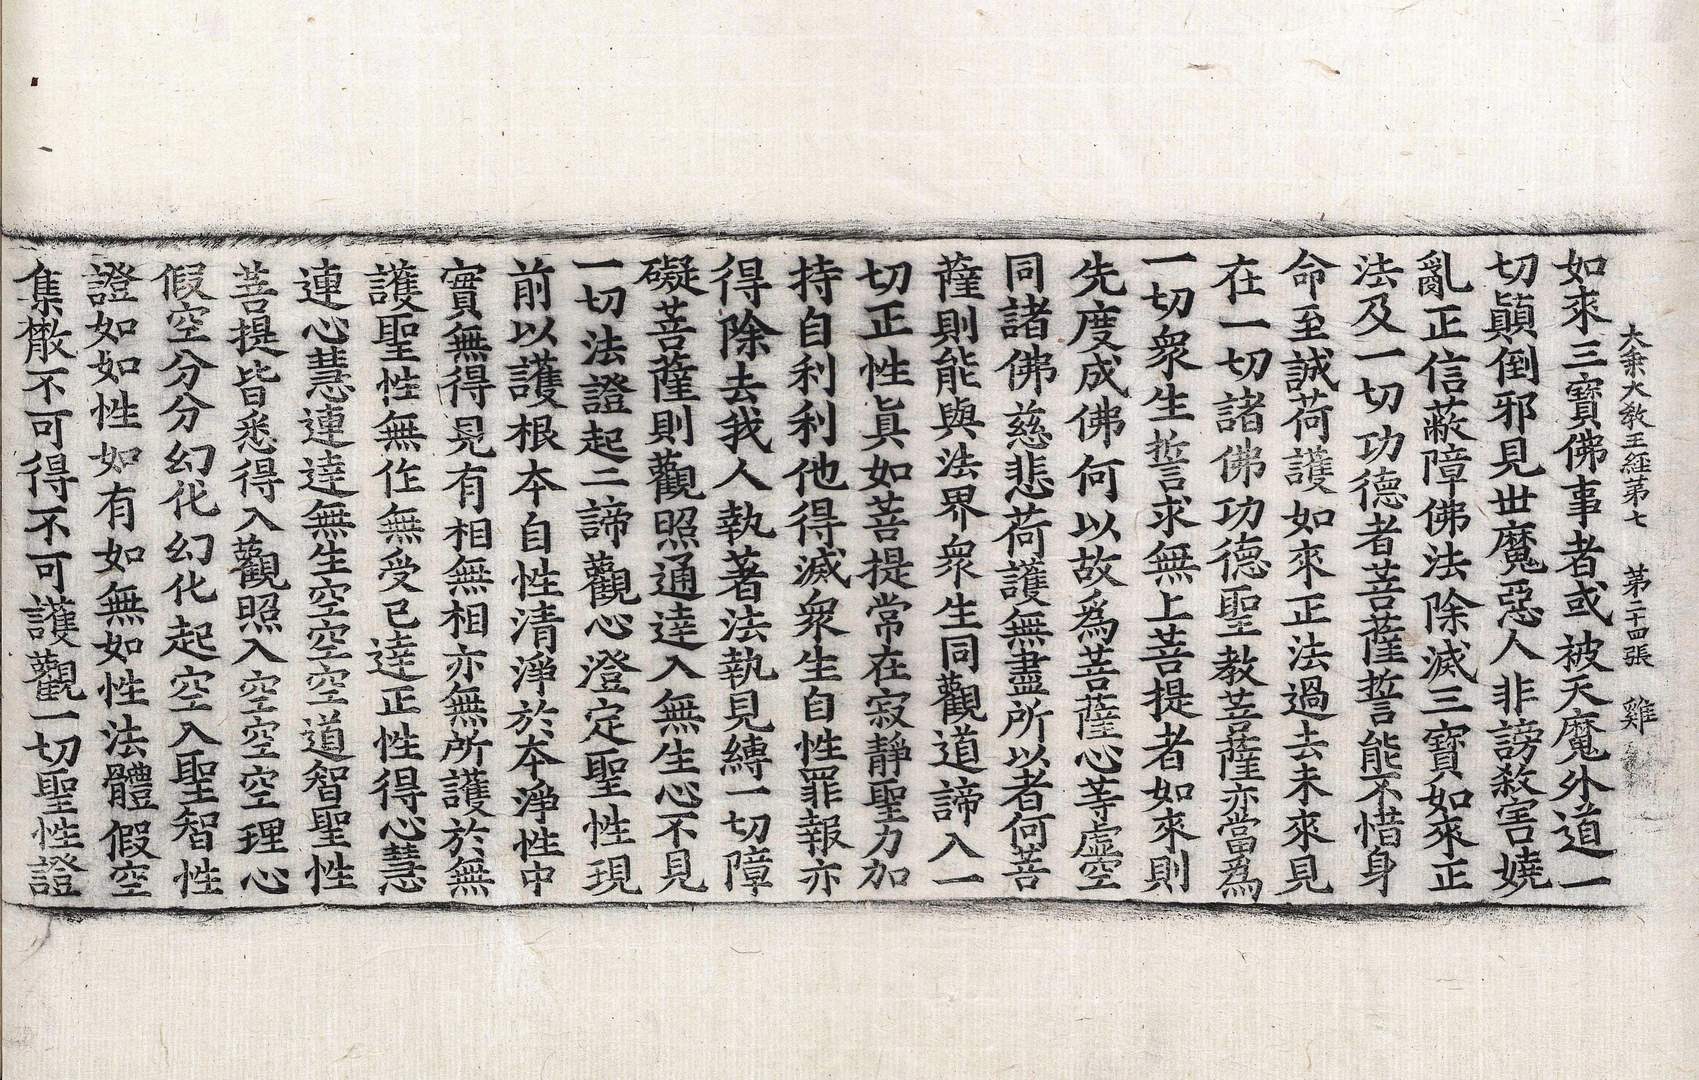 大乘大教王經第七　第二十四張　雞
如來三寶佛事者或被天魔外道一
切顚倒邪見世魔惡人非謗殺害嬈
亂正信蔽障佛法除滅三寶如來正
法及一切功德者菩薩誓能不惜身
命至誠荷護如來正法過去未來見
在一切諸佛功德聖教菩薩亦當爲
一切衆生誓求無上菩提者如來則
先度成佛何以故爲菩薩心等虛空
同諸佛慈悲荷護無盡所以者何菩
薩則能與法界衆生同觀道諦入一
切正性眞如菩提常在寂靜聖力加
持自利利他得滅衆生自性罪報亦
得除去我人執著法執見縛一切障
礙菩薩則觀照通達入無生心不見
一切法證起二諦觀心澄定聖性現
前以護根本自性清淨於本淨性中
實無得見有相無相亦無所護於無
護聖性無作無受已達正性得心慧
連心慧連達無生空空空道智聖性
菩提皆悉得入觀照入空空空理心
假空分分幻化幻化起空入聖智性
證如如性如有如無如性法體假空
集散不可得不可護觀一切聖性證